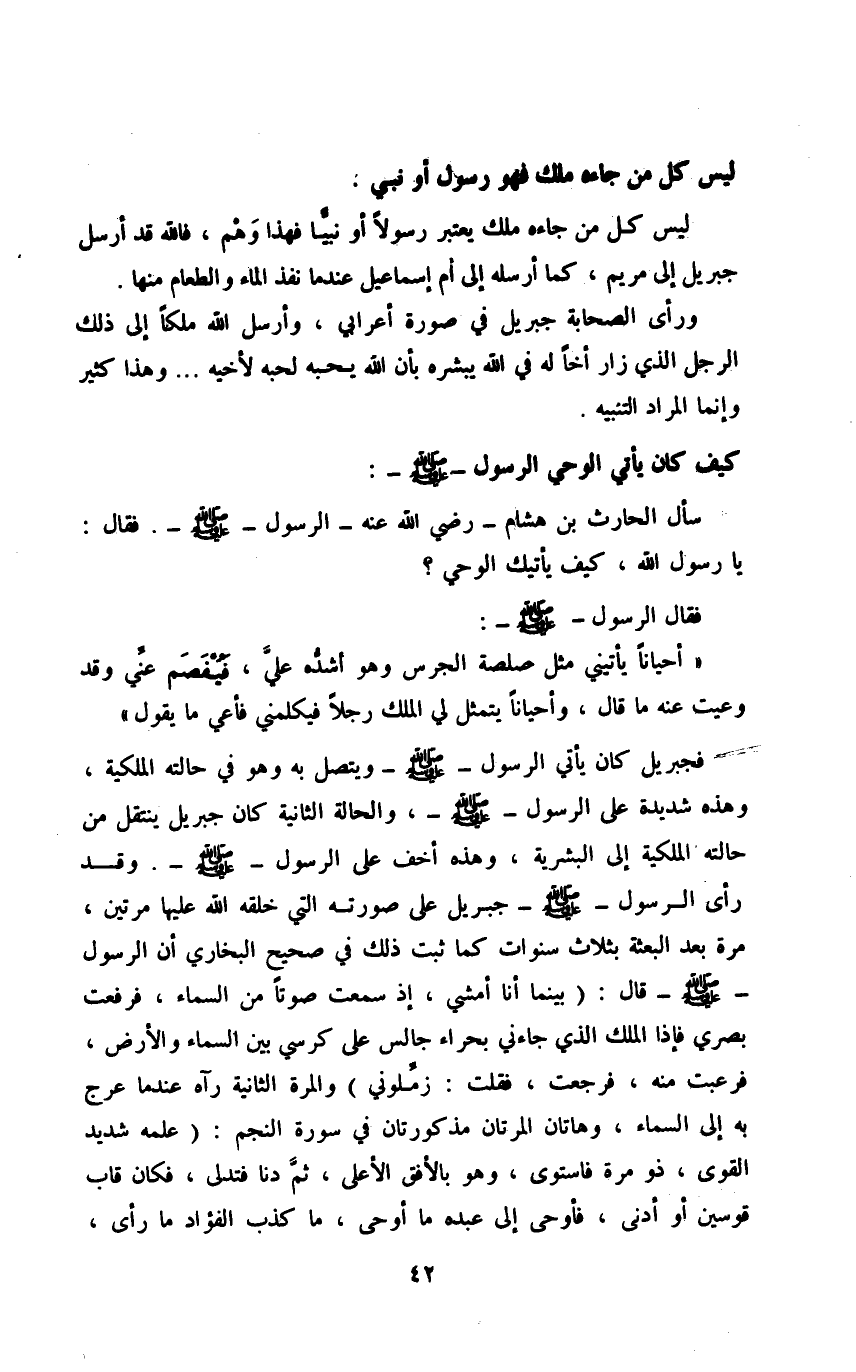 ليس كل من جاءه ملك فهو رسول أو نبي :
ليس كل من جاءه ملك يعتبر رسولاً أو نبيًّا فهذا وَهْم ، فالله قد أرسل
جبريل إلى مريم ، كما أرسله إلى أم إسماعيل عندما نفذ الماء والطعام منها .
ورأى الصحابة جبريل في صورة أعرابي ، وأرسل الله ملكاً إلى ذلك
الرجل الذي زار أخاً له في الله يبشره بأن الله يحبه لحبه لأخيه ... وهذا كثير
وإنما المراد التنبيه .
كيف كان يأتي الوحي الرسول - ﷺ - :
سأل الحارث بن هشام - رضي الله عنه - الرسول - ﷺ - . فقال :
يا رسول الله ، كيف يأتيك الوحي ؟
فقال الرسول - ﷺ - :
« أحياناً يأتيني مثل صلصة الجرس وهو أشدُّه عليَّ ، فَيُفْصَم عنِّي وقد
وعيت عنه ما قال ، وأحياناً يتمثل لي الملك رجلاً فيكلمني فأعي ما يقول »
فجبريل كان يأتي الرسول - ﷺ - ويتصل به وهو في حالته الملكية ،
وهذه شديدة على الرسول - ﷺ - ، والحالة الثانية كان جبريل ينتقل من
حالته الملكية إلى البشرية ، وهذه أخف على الرسول - ﷺ - . وقد
رأى الرسول - ﷺ - جبريل على صورته التي خلقه الله عليها مرتين ،
مرة بعد البعثة بثلاث سنوات كما ثبت ذلك في صحيح البخاري أن الرسول
- ﷺ - قال : ( بينما أنا أمشي ، إذ سمعت صوتاً من السماء ، فرفعت
بصري فإذا الملك الذي جاءني بحراء جالس على كرسي بين السماء والأرض ،
فرعبت منه ، فرجعت ، فقلت : زمِّلوني ) والمرة الثانية رآه عندما عرج
به إلى السماء ، وهاتان المرتان مذكورتان في سورة النجم : ( علمه شديد
القوى ، ذو مرة فاستوى ، وهو بالأفق الأعلى ، ثمَّ دنا فتدلى ، فكان قاب
قوسين أو أدنى ، فأوحى إلى عبده ما أوحى ، ما كذب الفؤاد ما رأى ،
٤٢